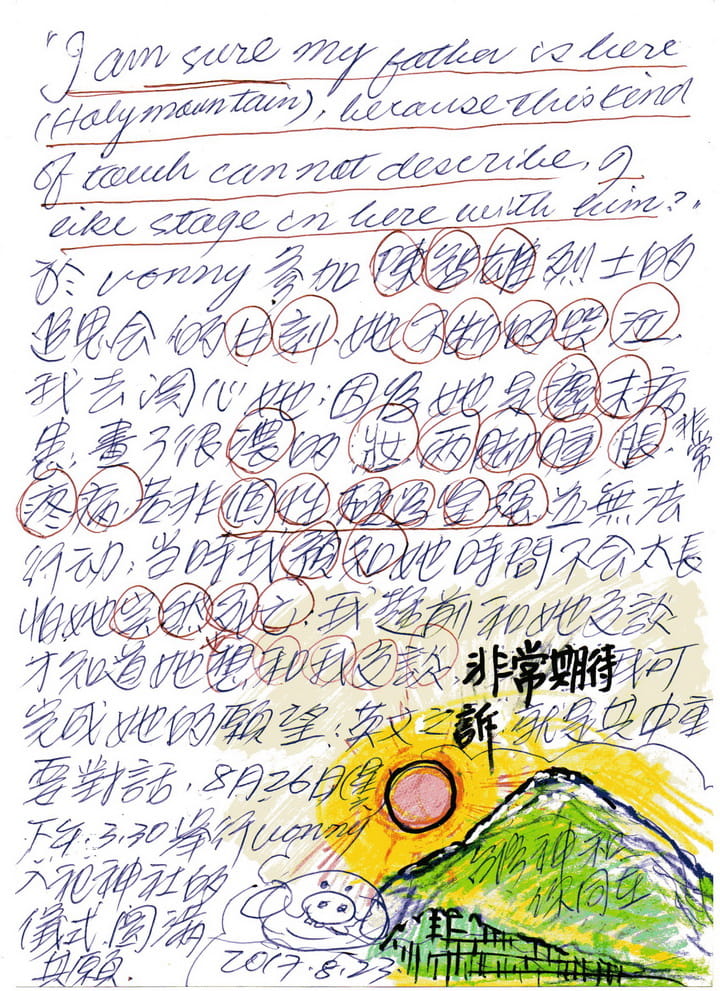 "I am sure my father is here
(Holymountain), because this kind
of touch can not describe, I
like stage in here with him?"
於 vonny 參加陳智雄烈士的
追思会的時刻, 她不斷的哭泣.
我去関心她; 因為她是癌末病
患, 畫了很濃的妝 兩脚腫脹. 非常
疼病. 若非個性極為堅强並無法
行动; 当時我預知她時間不会太長
怕她突然死亡. 我趋前和她交談
才知道她想和我交談, 非常期待 我可
完成她的願望; 英文之訴, 就是其中主
要對話. 8月26日(星六)
下午 3.30 舉行 vonny
入祀神社的
儀式圓滿
其願.
2017.8.23.
台湾神和
你同在